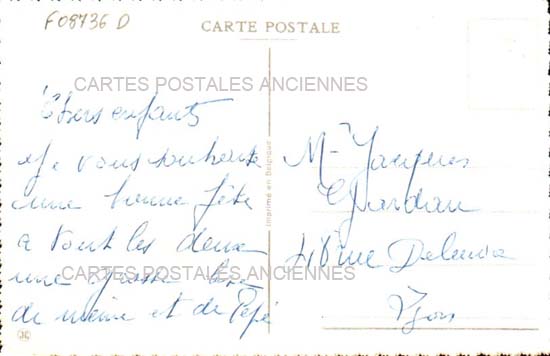 F08736 D
CARTE POSTALE
CARTES POSTALES ANCIENNES
Chers enfants
Je vous souhaite
une bonne fête
a tout les deux
une grosse
de meme et de Pépé
Imprimé en Belgique
Mr Jacques
48 rue
CARTES POSTALES ANCIENNES